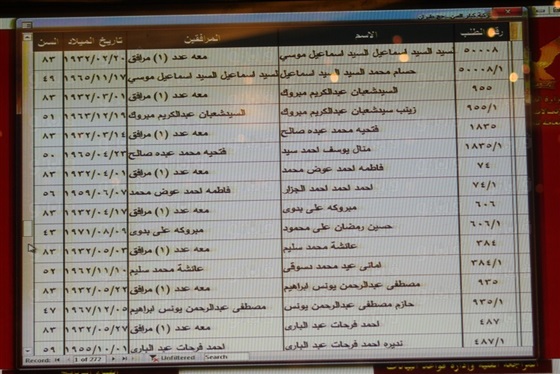 رقم الطلب الاسم المرافقين تاريخ الميلاد السن
٥٠٠٠٨ السيد السيد اسماعيل السيد اسماعيل موسي معه عدد (١) مرافق ١٩٣٢/٠٢/٢٠ ٨٣
٥٠٠٠٨/١ حسام محمد السيد السيد اسماعيل السيد اسماعيل السيد اسماعيل موسي ١٩٦٥/١١/١٧ ٤٩
٩٥٥ السيدشعبان عبدالكريم مبروك معه عدد (١) مرافق ١٩٣٢/٠٣/٠١ ٨٣
٩٥٥/١ زينب سيدشعبان عبدالكريم مبروك السيدشعبان عبدالكريم مبروك ١٩٦٣/١٢/١٩ ٥١
١٨٣٥ فتحيه محمد عبده صالح معه عدد (١) مرافق ١٩٣٢/٠٣/١٤ ٨٣
١٨٣٥/١ منال يوسف احمد سيد فتحيه محمد عبده صالح ١٩٦٥/٠٤/٢٣ ٥٠
٧٤ فاطمه احمد عوض محمد معه عدد (١) مرافق ٨٣
٧٤/١ احمد احمد احمد الجزار فاطمه احمد عوض محمد ١٩٥٩/٠٦/٠٧ ٥٦
٦٠٦ مبروكه على بدوى معه عدد (١) مرافق ١٩٣٢/٠٤/١٧ ٨٣
٦٠٦/١ حسين رمضان على محمود مبروكه على بدوى ١٩٧١/٠٨/٠٦ ٤٣
٣٨٤ عائشة محمد سليم معه عدد (١) مرافق ١٩٣٢/٠٥/٠٣ ٨٣
٣٨٤/١ امانى عيد محمد دسوقى عائشة محمد سليم ١٩٦٢/١١/١٠ ٥٢
٩٣٥ مصطفى عبدالرحمن يونس ابراهيم معه عدد (١) مرافق ١٩٣٢/٠٥/٢٢ ٨٣
٩٣٥/١ حازم مصطفى عبدالرحمن يونس مصطفى عبدالرحمن يونس ابراهيم ١٩٦٧/١٢/٠٥ ٤٧
٤٨٧ احمد فرحات عبد البارى معه عدد (١) مرافق ١٩٣٢/٠٥/٢٧ ٨٣
٤٨٧/١ نديره احمد فرحات عبد البارى احمد فرحات عبد البارى ١٩٥٥/١٠/٠١ ٥٩
Record: 1 of 272 Unfiltered Search